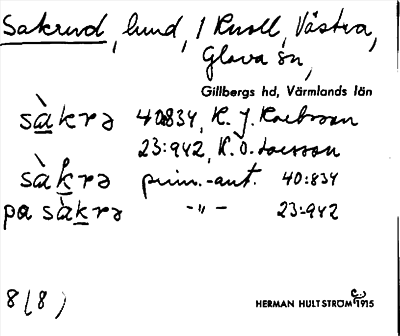 Sakrud, lund, / Knoll, Västra,
Glava sn,
Gillbergs hd, Värmlands län
sàkrə 40:834, K. J.
23:942, K. O. Larsson
sàkrə prim.-ant. 40:834
pa sàkrə -"- 23:942
8(8)
HERMAN HULTSTRÖM 1915